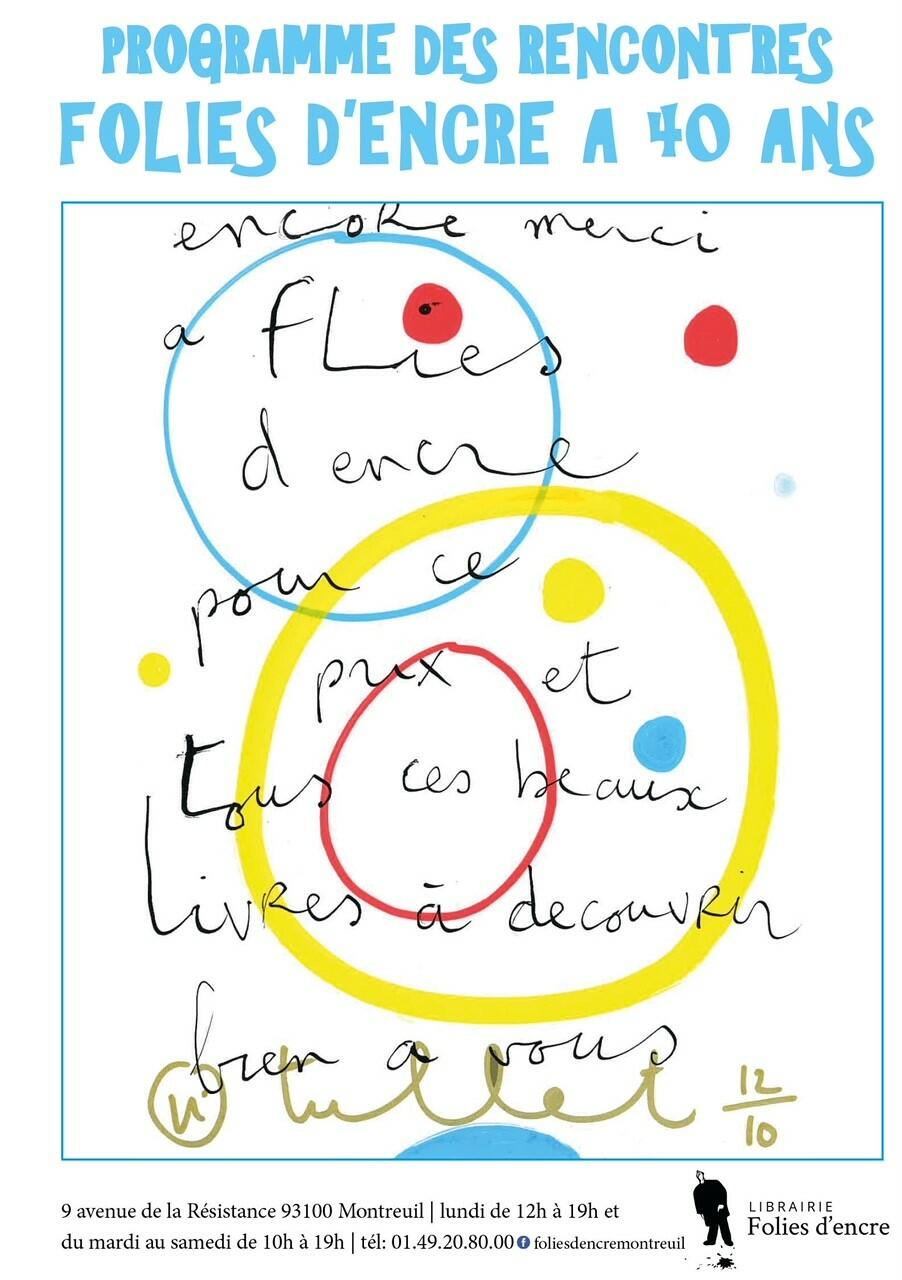 PROGRAMME DES RENCONTRES
FOLIES D'ENCRE A 40 ANS
encore merci
a fLies
d encre
pour ce
prix et
tous ces beaux
Livres à decouvrir
bien a vous
tullet 12/10
9 avenue de la Résistance 93100 Montreuil | lundi de 12h à 19h et
du mardi au samedi de 10h à 19h | tél: 01.49.20.80.00 f foliesdencremontreuil
LIBRAIRIE
Folies d'encre